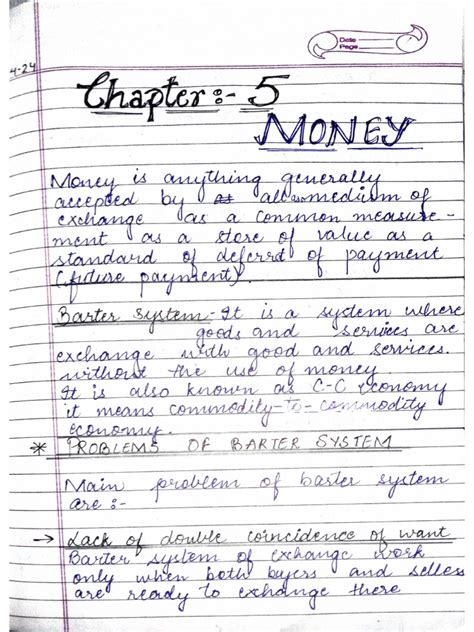 Date
Page
4-24
Chapter:- 5
MONEY
Money is anything generally
accepted by all as medium of
exchange as a common measure-
ment as a store of value as a
standard of deferrd of payment
(future payment).
Barter system - It is a system where
goods and services are
exchange with good and services.
without the use of money.
It is also known as C-C economy
it means commodity-to-commodity
economy.
* PROBLEMS OF BARTER SYSTEM
Main problem of barter system
are :-
→ Lack of double coincidence of want
Barter system of exchange work
only when both byers and selless
are ready to exchange there